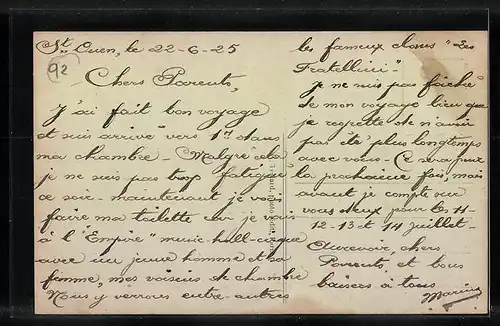 St Ouen, le 22-6-25
92
Chers Parents,
J'ai fait bon voyage
et suis arrivé vers 1h dans
ma chambre - Malgré cela
je ne suis pas trop fatigué
ce soir - maintenant je vais
faire ma toilette car je vais
à l'"Empire" music-hall-cirque
avec un jeune homme et sa
femme, mes voisins de chambre
Nous y verrons entre autres
les fameux clowns "Les
Fratellini" -
Je ne suis pas fâché
de mon voyage bien que
je regrette de n'avoir
pas été plus longtemps
avec vous - Ce sera pour
la prochaine fois, mais
avant je compte sur
vous deux pour les 11-
12-13 et 14 juillet -
Aurevoir, chers
Parents et bons
baisers à tous
Marius